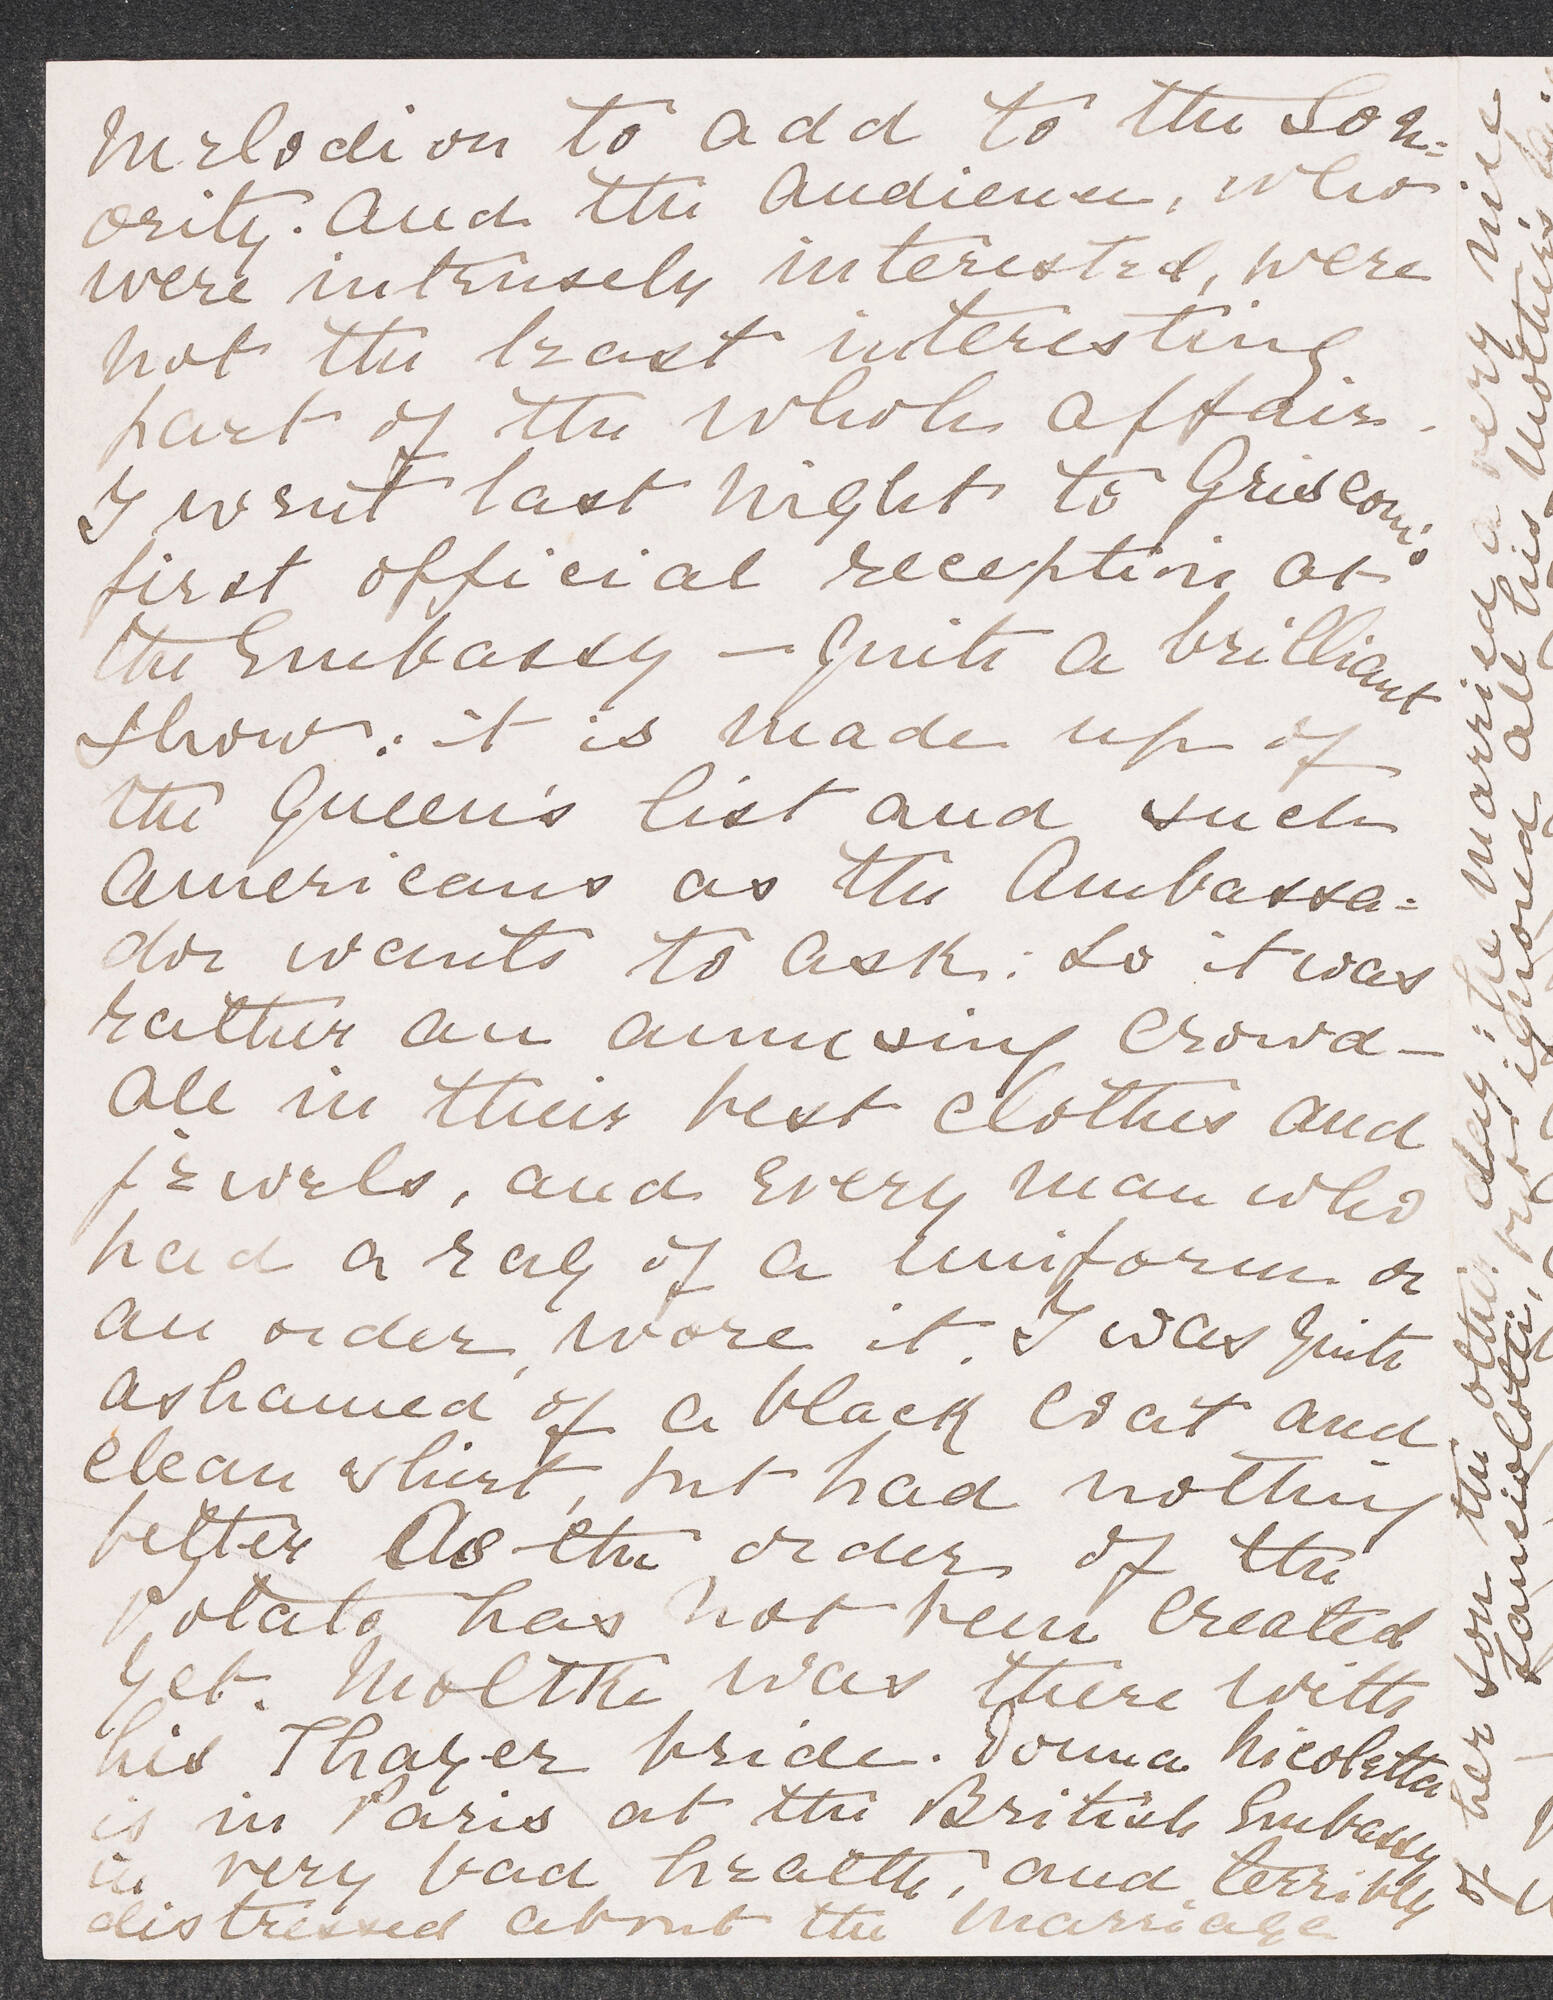 Melodion to add to the Son=
ority. And the audience, who
were intensely interested, were
not the least interesting
part of the whole affair.
I went last night to Griscom's
first official reception at
the Embassy — quite a brilliant
show: it is made up of
the Queen's list and such
Americans as the Ambassa=
dor wants to ask: so it was
rather an amusing crowd —
all in their best clothes and
jewels, and every man who
had a rag of a uniform or
an order, wore it. I was quite
ashamed of a black coat and
clean shirt, but had nothing
better As the order of the
Potato has not been created
yet. Moltke was there with
his Thayer bride. Donna Nicoletta
is in Paris at the British Embassy
in very bad health, and terribly
distressed about the marriage
of her son the other day: he married a very nice
, but ignored all his Mother's